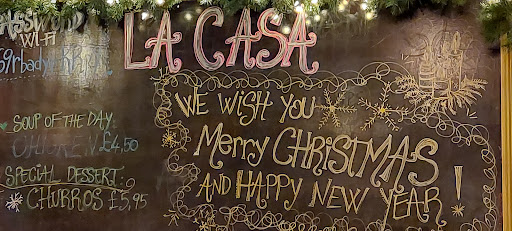 PASSWORD
WI-FI
LA CASA
SOUP OF THE DAY:
CHICKEN £4.50
SPECIAL DESSERT:
CHURROS £5,95
WE WISH YOU
Merry CHRISTMAS
AND HAPPY NEW YEAR!